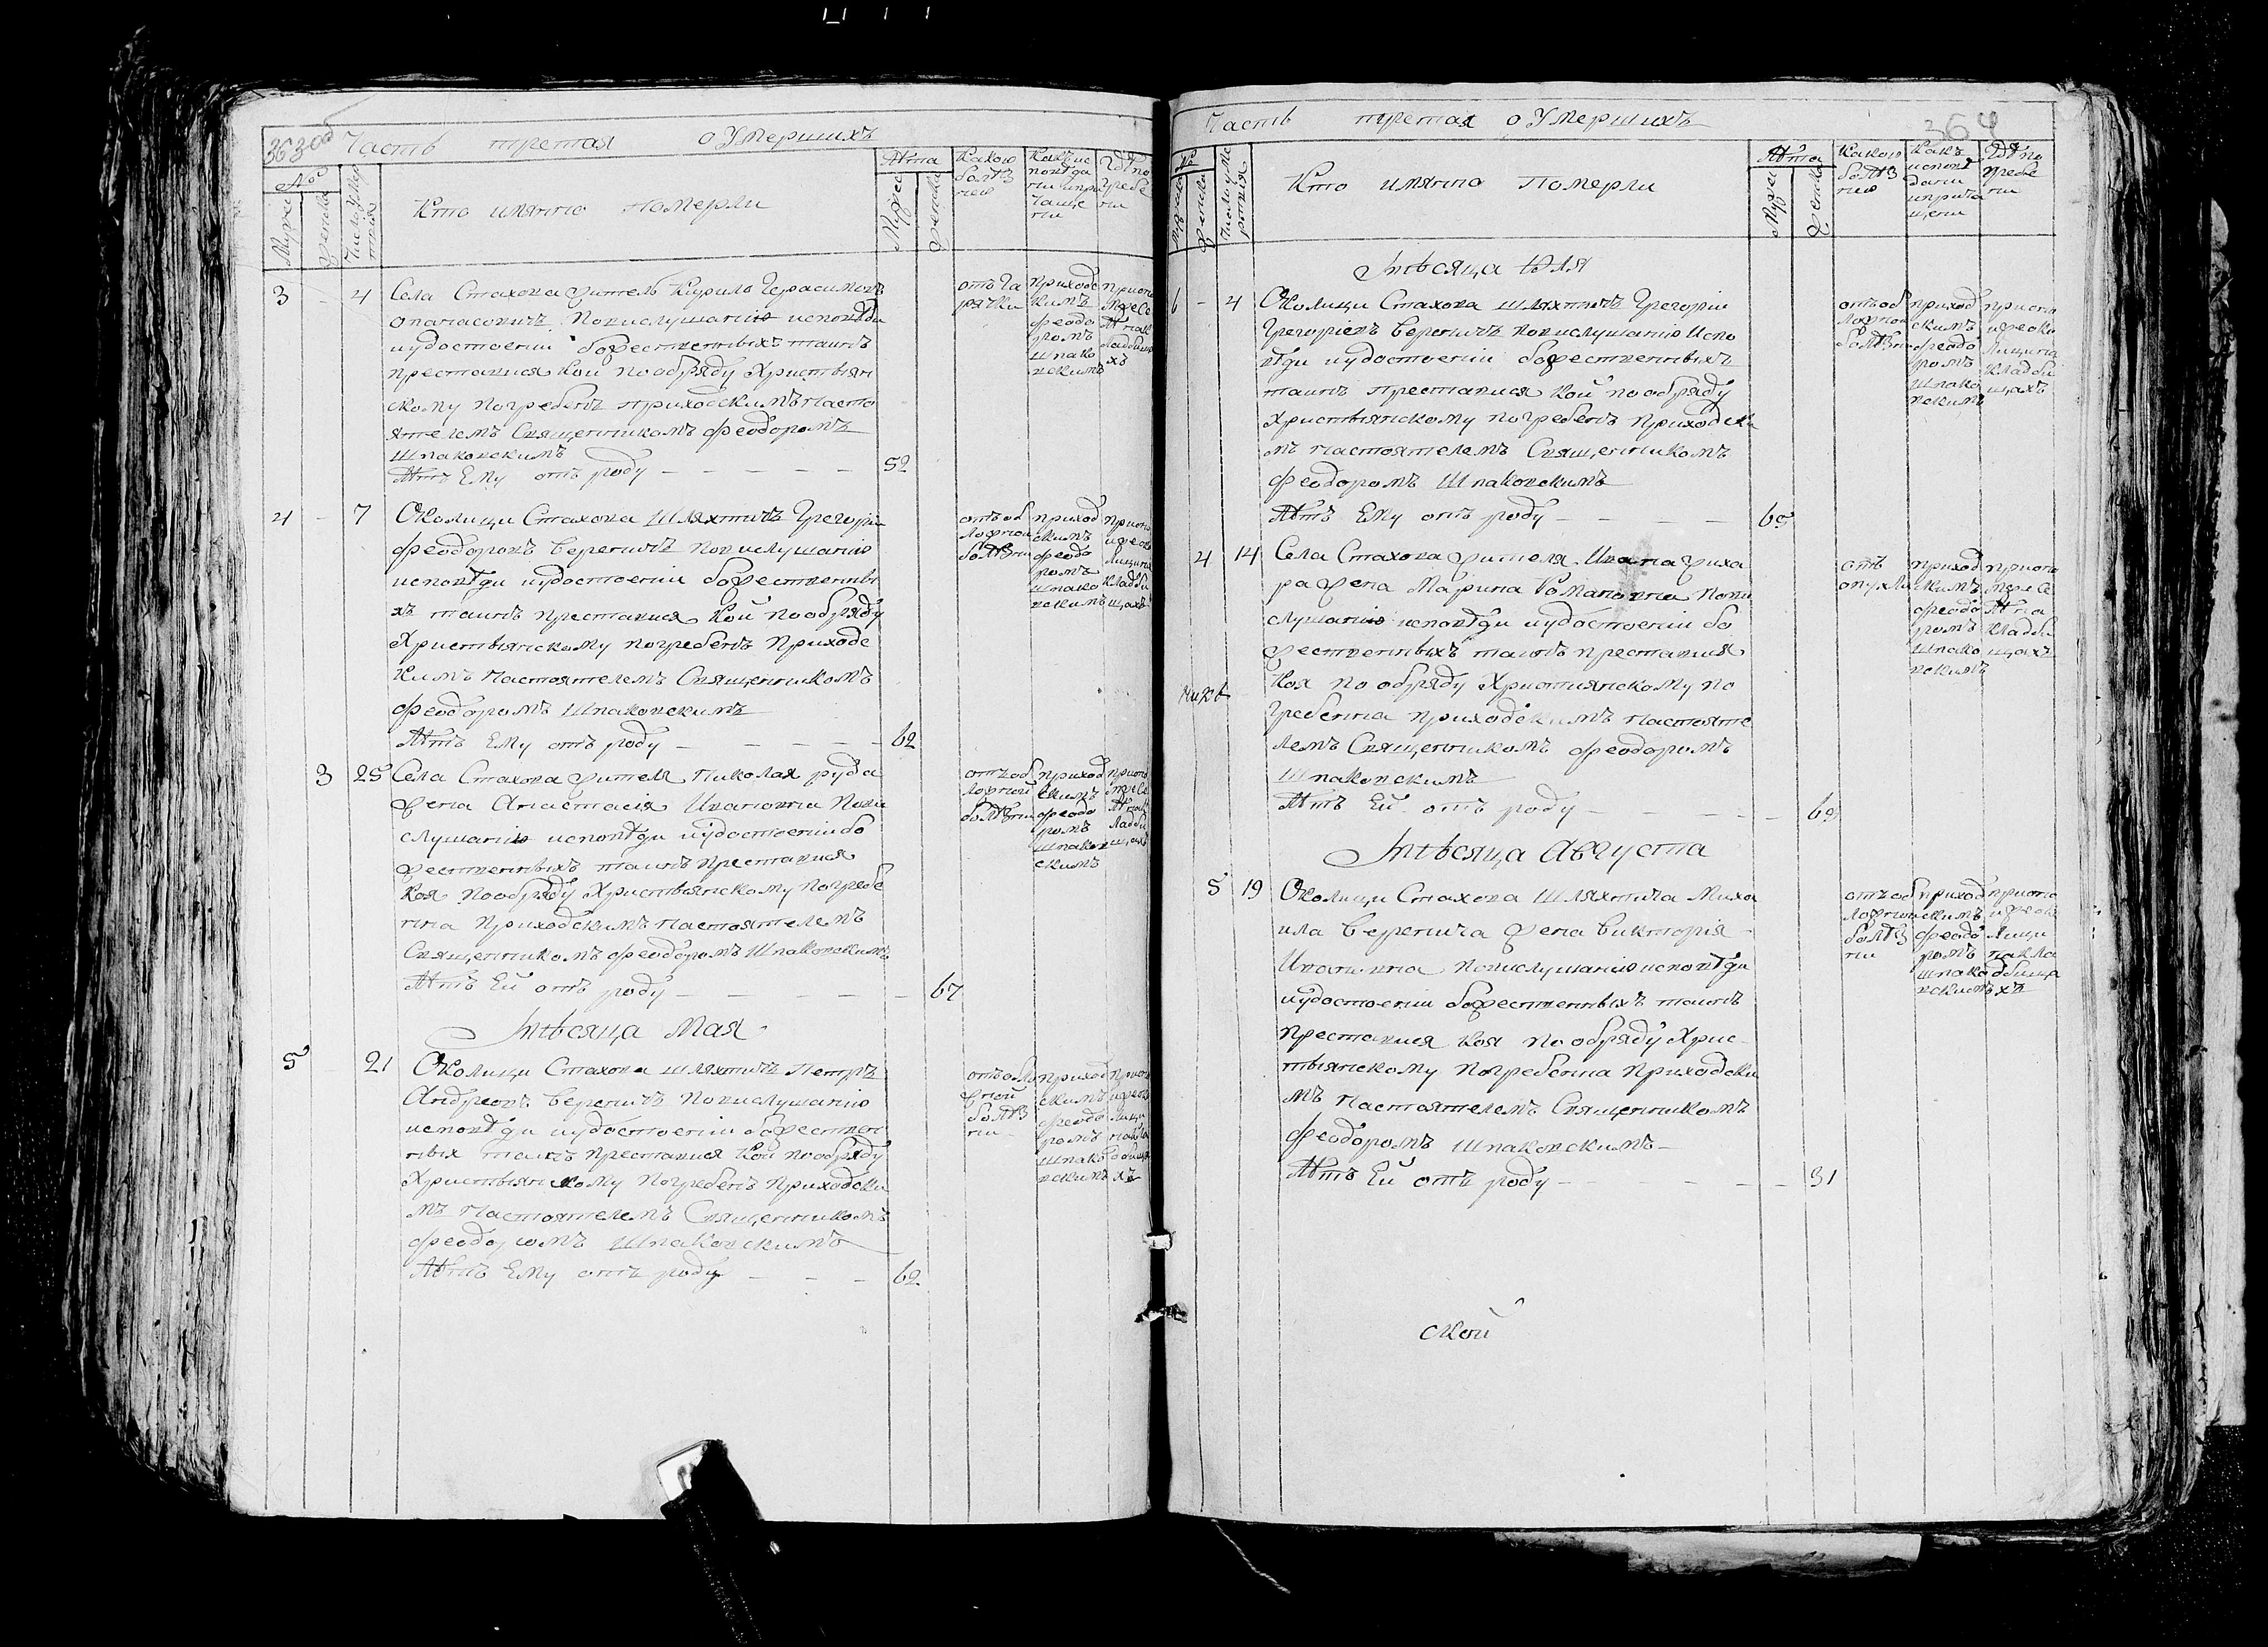 363 об
Часть третая о Умершихъ
№
Мужес
Женска
Число Умер
тія
Кто имянно Померли
Лѣта
Мужес
Женска
Какою
болѣз
нею
Какъ ис
повѣда
ни при
чаще
ни
Гдѣ по
гребе
ни
3 - 4
Села Стахова житель Кирилъ Герасимовъ
Опанасовичъ Повислушанію исповѣди
иудостоении божественныхъ таинъ
преставися Кой пообряду Христіян
скому погребенъ приходскимъ насто
ятелемъ Священникомъ Феодоромъ
Шпаковскимъ
Лѣтъ Ему отъ роду - - - - - 52
отъ га
рячки
приходс
кимъ
Феодо
ромъ
Шпако
вскимъ
4 - 7
Околици Стахова Шляхтичъ Григорій
Феодоровъ Вереничъ повислушанію
исповѣди иудостоении божественны
хъ таинъ преставися Кой пообряду
Христіянскому погребенъ Приходс
кимъ Настоятелемъ Священникомъ
Феодоромъ Шпаковскимъ
Лѣтъ Ему отъ роду - - - - - 62
отъ об
ложной
болѣзни
приход
скимъ
Феодо
ромъ
Шпако
вскимъ
3 25
Села Стахова жителя Николая руда
жена Анастасія Ивановна Пови
слушанію исповѣди иудостоении бо
жественныхъ таинъ Преставися
Коя пообряду Христіянскому погребе
нна приходскимъ настоятелемъ
Священникомъ Феодоромъ Шпаковскимъ
Лѣтъ Ей отъ роду - - - - - 67
отъ об
ложной
болѣзни
приход
скимъ
Феодо
ромъ
Шпаков
скимъ
Мѣсяца Мая
5 21
Околици Стахова шляхтичъ Петръ
Андреевъ Вереничъ Повислушанію
исповѣди иудостоении божествен
ных таинъ преставися Кой пообряду
Христіянскому Погребенъ Приходски
мъ Настоятелемъ Священникомъ
Феодоромъ Шпаковскимъ
Лѣтъ Ему отъ роду - - - 62
приход
скимъ
Феодо
ромъ
Шпако
вскимъ
Часть третая о Умершихъ
364
№
Кто имянно Померли
Лѣта
Мужес
Женска
Какою
болѣз
нею
Какъ
исповѣ
дани
иприча
щени
Гдѣ по
гребе
ни
Мѣсяца Юля
6 - 4
Околици Стахова шляхтичъ Григорій
Григоріевъ Вереничъ повислушанію Испо
вѣди иудостоении божественныхъ
таинъ преставися Кой пообряду
Христіянскому погребенъ Приходски
мъ Настоятелемъ Священникомъ
Феодоромъ Шпаковскимъ
Лѣтъ Ему отъ роду - - - - 65
отъ об
ложной
болѣзни
приход
скимъ
Феодо
ромъ
Шпако
вскимъ
4 14
Села Стахова жителя Ивана жиха
ра жена Марина Романовна Пови
слушанію исповѣди иудостоении бо
жественныхъ таинъ преставися
Коя по обряду Християнскому по
гребенна приходскимъ настояте
лемъ Священникомъ Феодоромъ
Шпаковскимъ
Лѣтъ Ей отъ роду - - - - - 62
отъ
опухли
приход
скимъ
Феодо
ромъ
Шпако
вскимъ
Мѣсяца Августа
5 19
Околици Стахова Шляхтича Миха
ила Веренича жена Викторія
Ивановна повислушанію исповѣди
иудостоении божественныхъ таинъ
Преставися Коя по обряду Хрис
тіянскому погребенна Приходски
мъ Настоятелемъ Священникомъ
Феодоромъ Шпаковскимъ
Лѣтъ Ей отъ роду - - - - - 31
отъ об
ложной
болѣз
ни
приход
скимъ
Феодо
ромъ
Шпако
вскимъ
ской